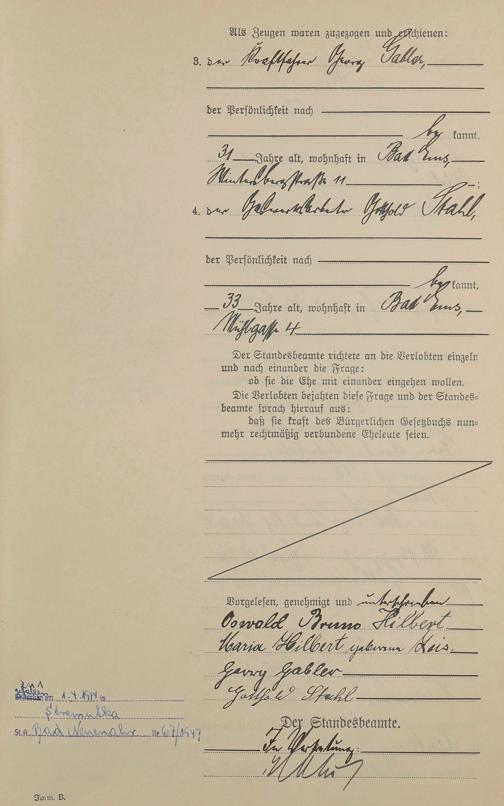 Als Zeugen waren zugezogen und erschienen:
3. der Kraftfahrer Georg Gabler,
der Persönlichkeit nach
be kannt,
31 Jahre alt, wohnhaft in Bad Ems,
Wintersbergstraße 11 ;
4. der Gaswerksarbeiter Gotthold Stahl,
der Persönlichkeit nach
be kannt,
33 Jahre alt, wohnhaft in Bad Ems,
Mühlgasse 4
Der Standesbeamte richtete an die Verlobten einzeln
und nach einander die Frage:
ob sie die Ehe mit einander eingehen wollen.
Die Verlobten bejahten diese Frage und der Standes-
beamte sprach hierauf aus:
daß sie kraft des Bürgerlichen Gesetzbuchs nun-
mehr rechtmäßig verbundene Eheleute seien.
Vorgelesen, genehmigt und unterschrieben
Oswald Bruno Hilbert
Maria Hilbert geborene
Georg Gabler
Gotthold Stahl
Der Standesbeamte.
In Vertretung:
zu 1
gefallen am 1.4.1944 in
Stremutka
St.A. Bad Neuenahr nr 67/1947
Form. B.